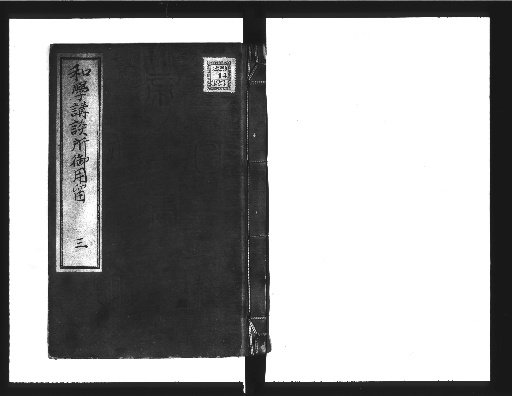 和學講談所御用留 三
14